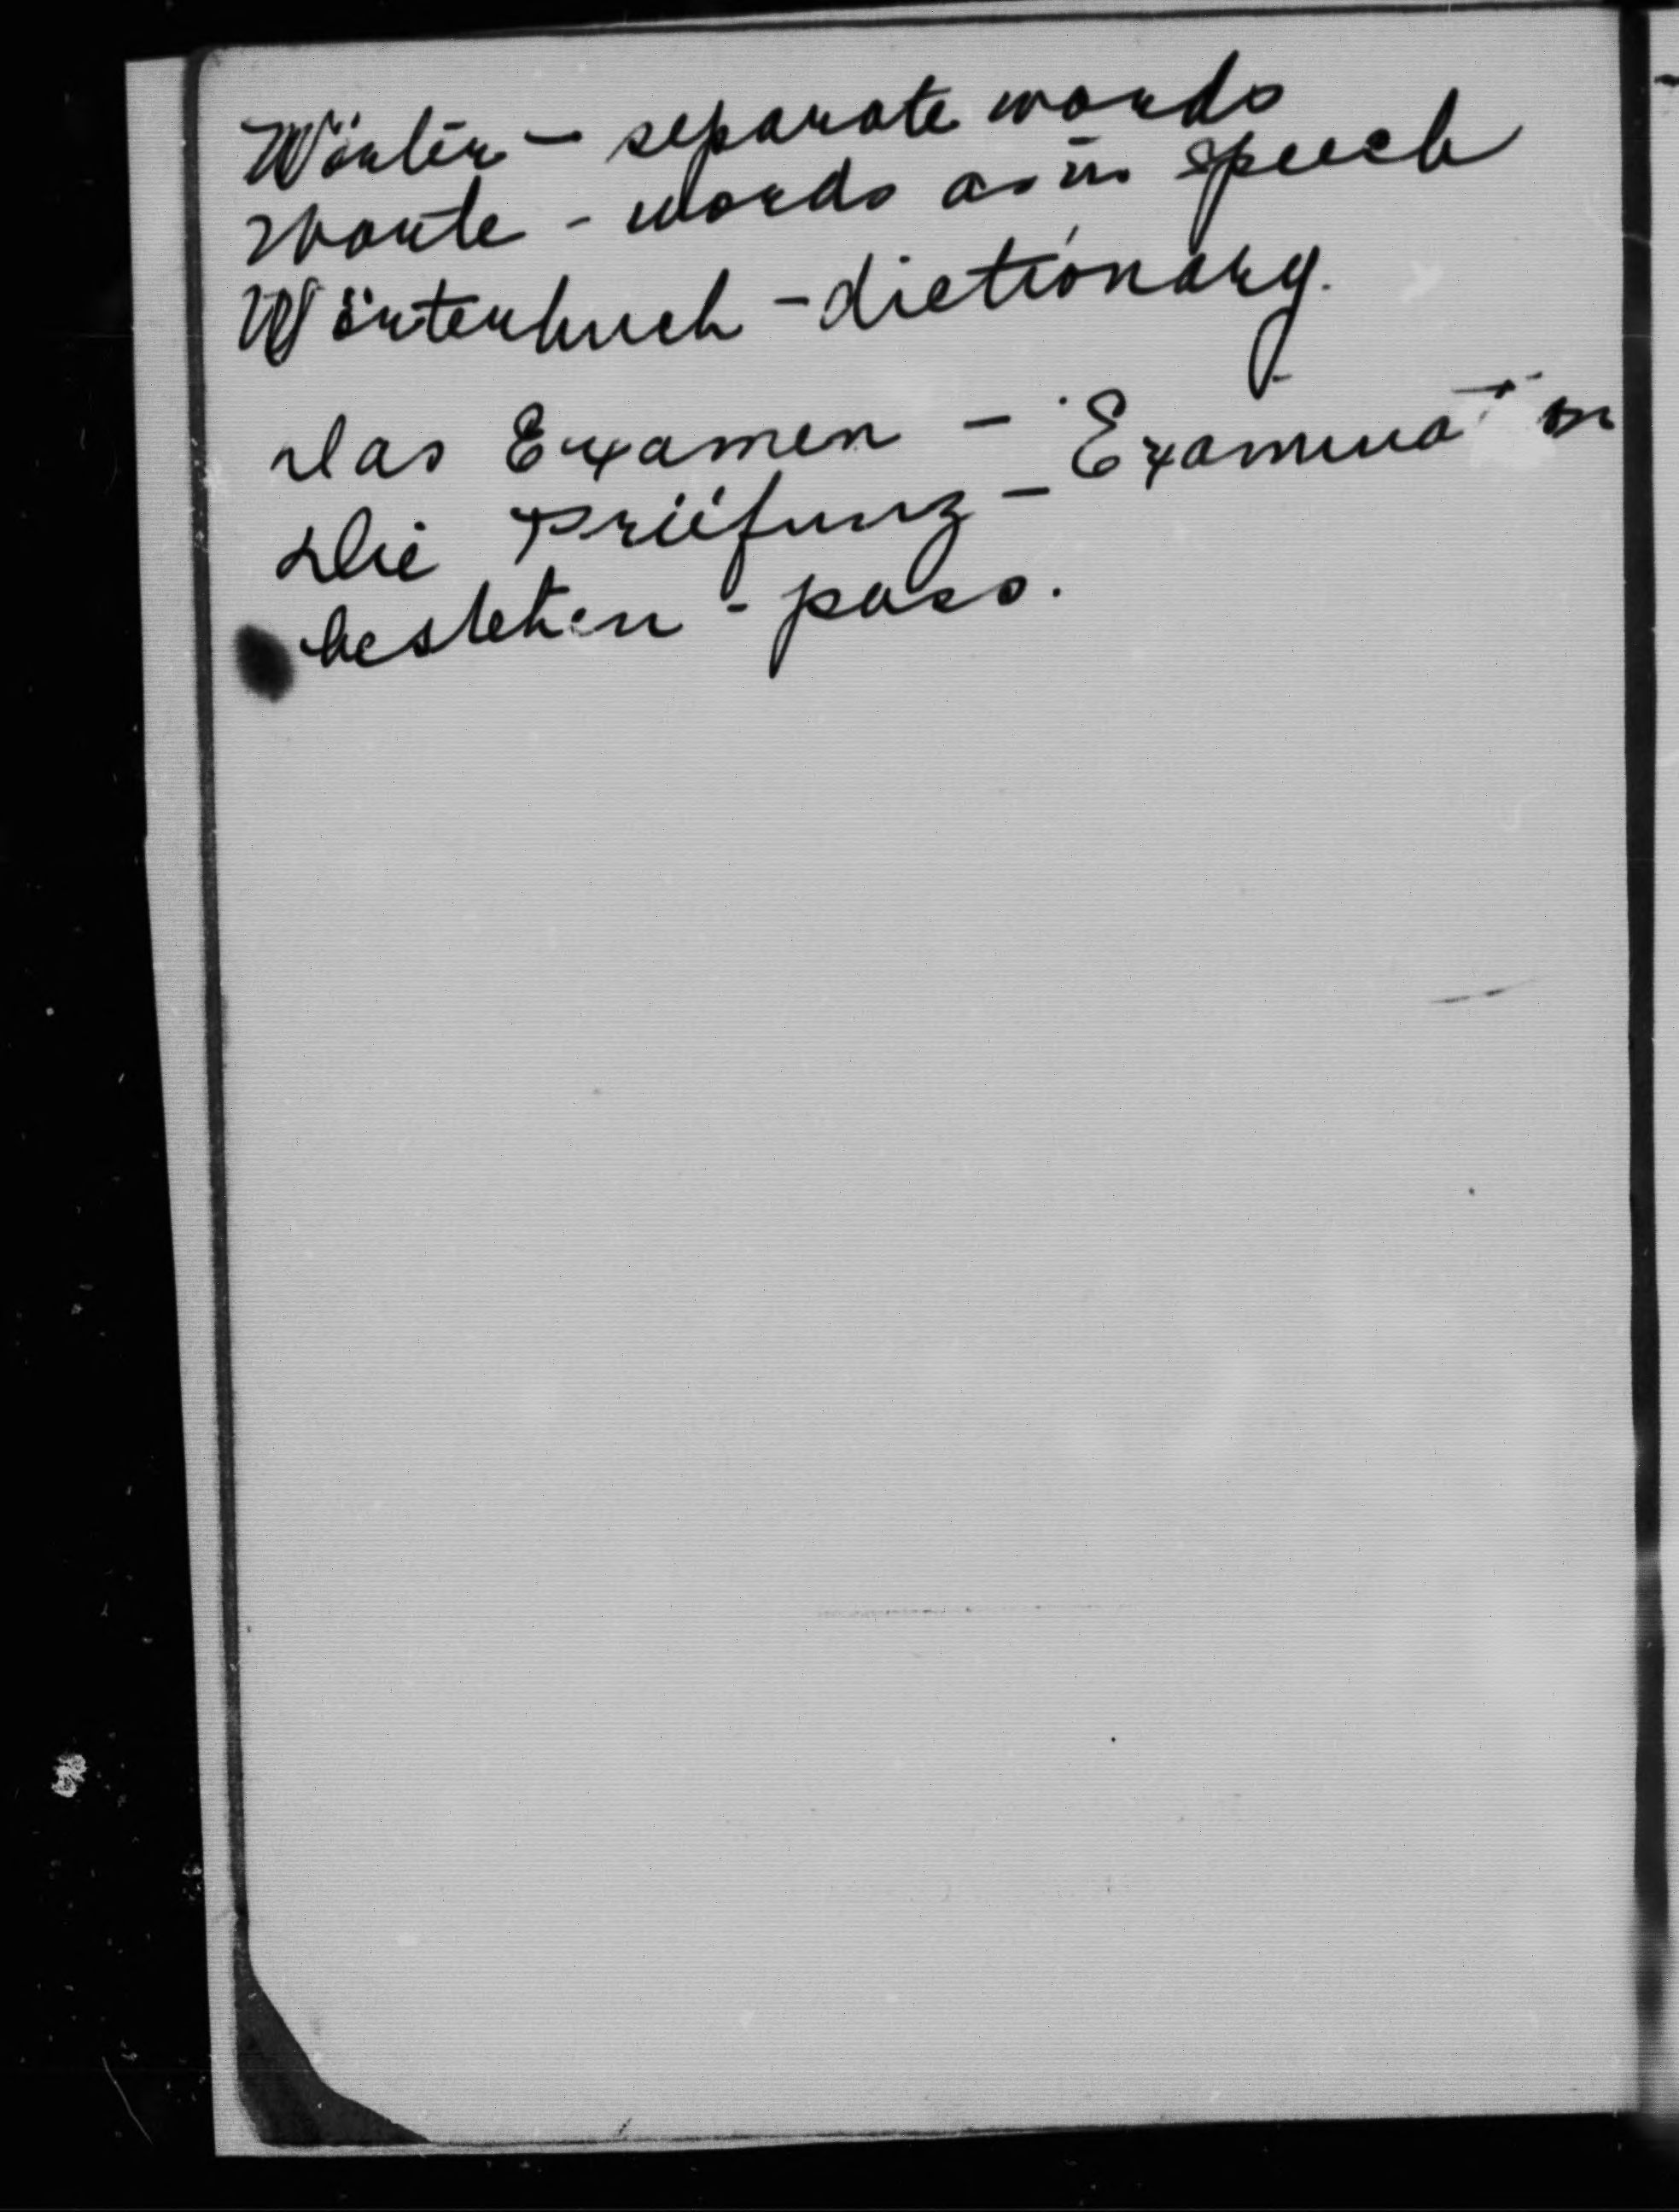 Wörter - separate words
Worte - words as in speech
Wörterbuch - dictionary.
Das Examen - Examination
Die Prüfung -
bestehen - pass.